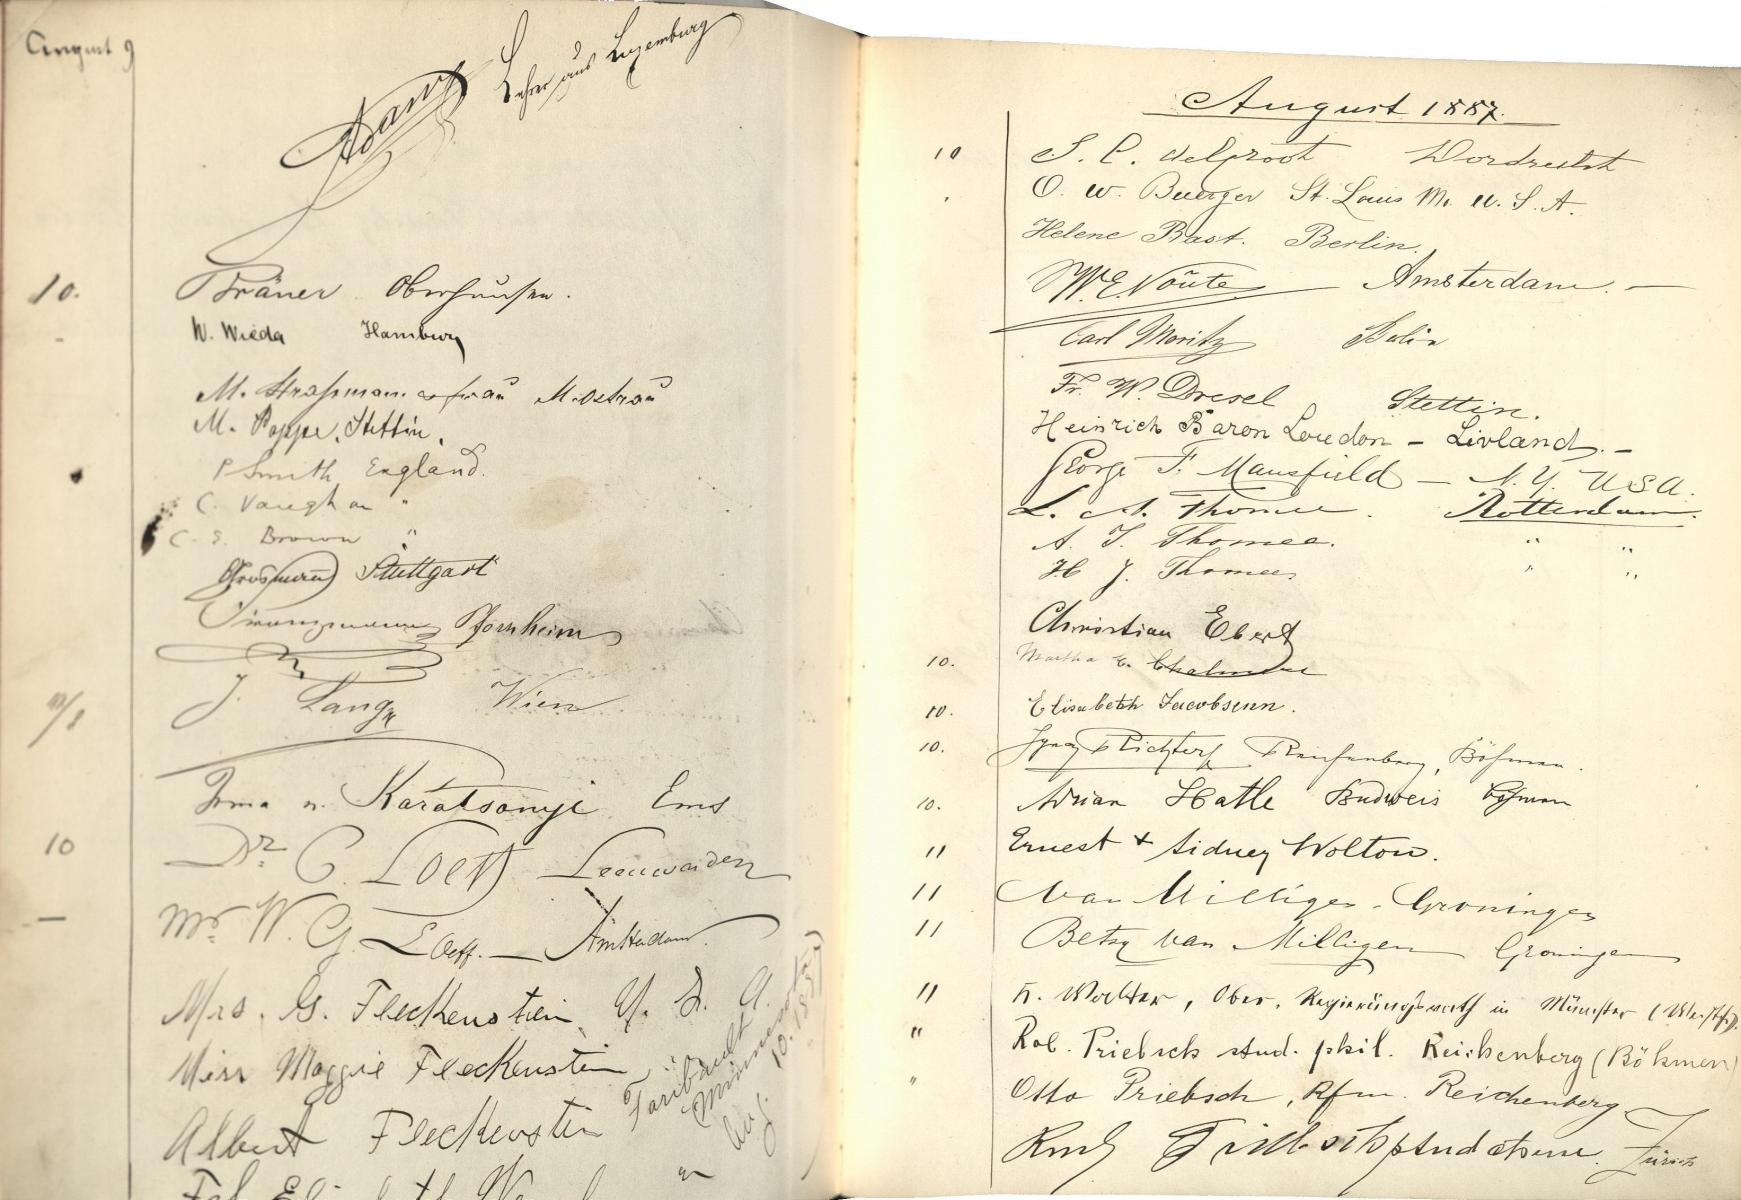 August 9
Adam Lehrer aus Luxemburg
10. Oberhausen.
W. Wieda Hamburg
M. Straßmann & Frau M. Ostrau
M. Poppe, Stettin.
P Smith England.
C. Vaughan "
C. E. Brown "
Stuttgart
Pforzheim
J. Lang Wien
Irma v. Karátsonyi Ems
10 Dr. C. Loeff Leeuwarden
— Mr. W. G. Loeff. — Amsterdam.
Mrs. G. Fleckenstein, U. S. A.
Miss Maggie Fleckenstein
Albert Fleckenstein
Faribault Minnesota
Aug. 10. 1887
August 1887.
10 S. C. Delgroot Dordrecht
O. W. Buerger St. Louis Mo. U. S. A.
Helene Bast. Berlin.
W. E. Voûte Amsterdam. —
Carl Moritz Berlin
Fr. W. Dresel Stettin.
Heinrich Baron Loudon — Livland. —
George F. Mansfield — N. Y. USA.
L. A. Thomee. Rotterdam.
A. J. Thomee. " "
H J. Thomee. " "
Christian Ebert
10. Martha C. Chalmers
10. Elisabeth Jacobsenn.
10. Ignaz Richter Reichenberg, Böhmen.
10. Adrian Hatle Budweis Böhmen
11 Ernest + Sidney Wolton.
11 Van Milligen - Groningen
11 Betsy van Milligen Groningen
11 H. Walter, Ober-Regierungsrath in Münster (Westf.).
" Rob. Priebsch stud. phil. Reichenberg (Böhmen)
" Otto Priebsch, Kfm. Reichenberg
Zürich